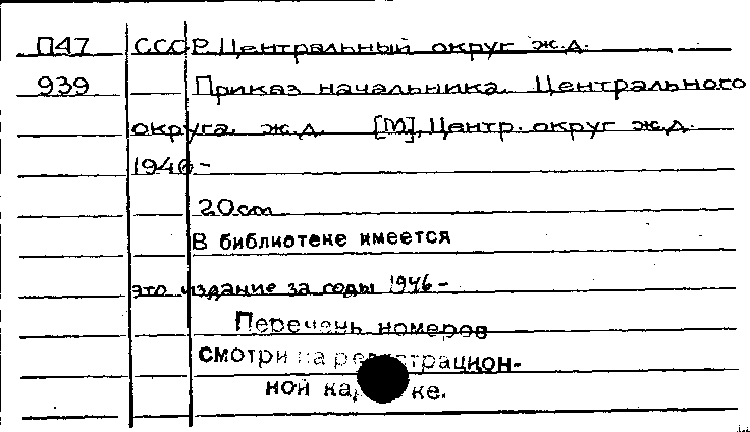 П47 СССР. Центральный округ ж.д.
939 Приказ начальника Центрального
округа ж.д. [М], Центр. округ ж.д.
1946-
20 cm
В библиотеке имеется
это издание за годы 1946-
Перечень номеров
смотри на регистрацион-
ной карточке.